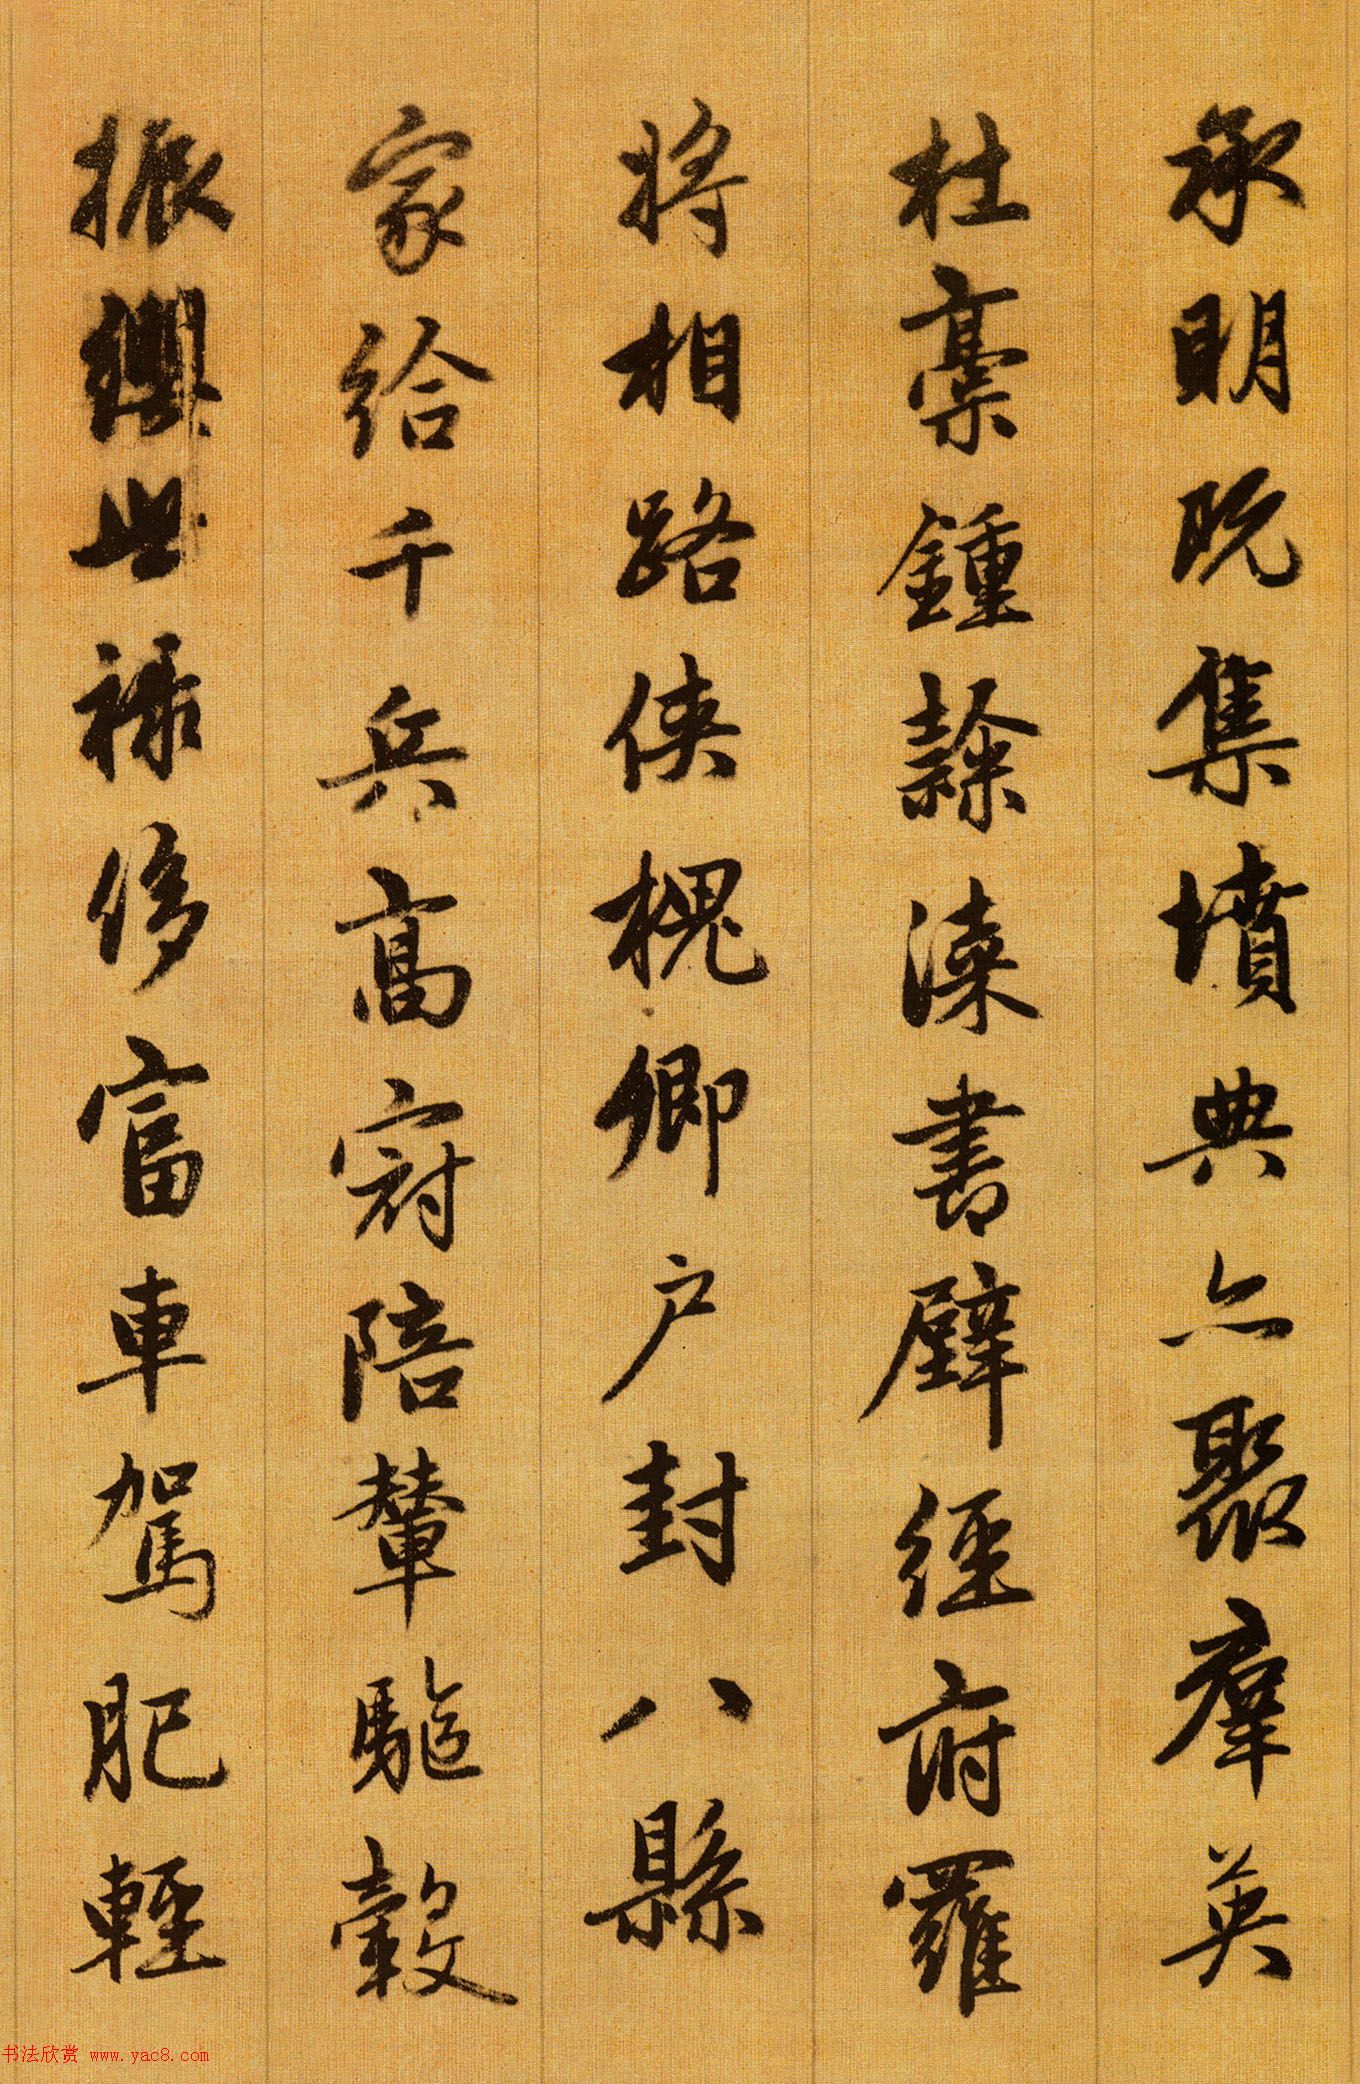 承明既集墳典亦聚羣英
杜稾鍾隸漆書壁經府羅
將相路俠槐卿户封八縣
家給千兵高冠陪輦驅轂
振纓世禄侈富車駕肥輕
书法欣赏 www.yac8.com